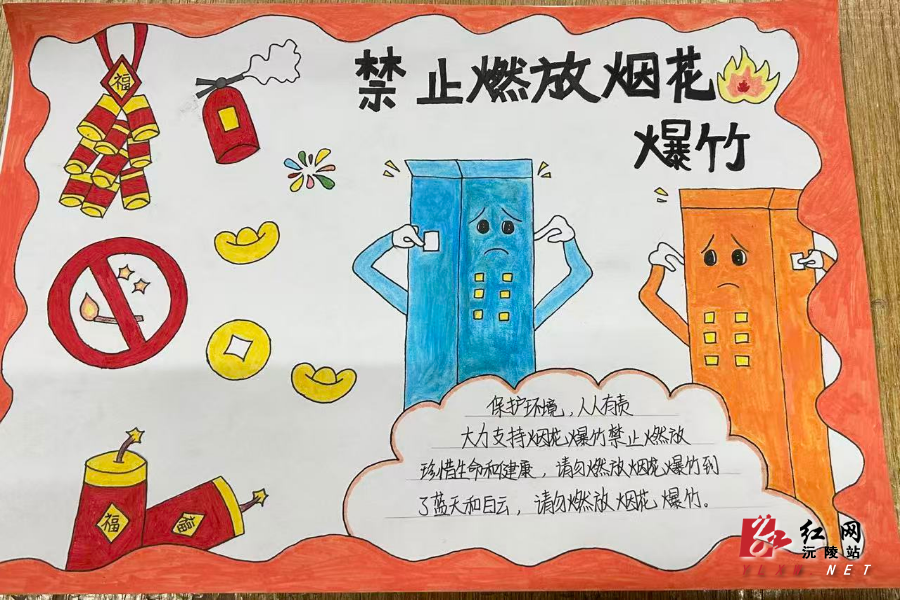 禁止燃放烟花
爆竹
福
保护环境,人人有责
大力支持烟花爆竹禁止燃放
珍惜生命和健康,请勿燃放烟花爆竹到
了蓝天和白云,请勿燃放烟花爆竹。
福
福
红网
沅陵站
NET